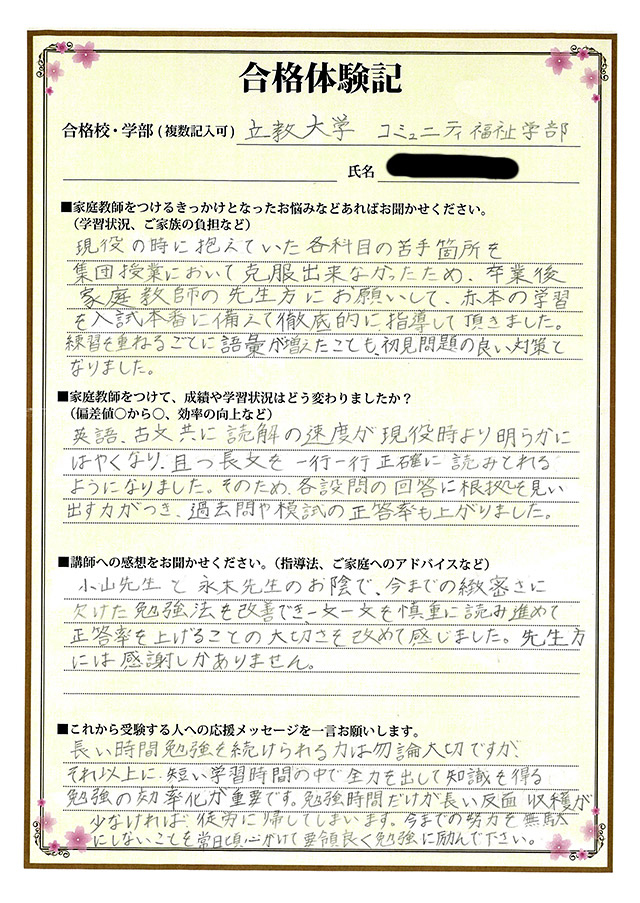 合格体験記
合格校・学部(複数記入可) 立教大学 コミュニティ福祉学部
氏名
■家庭教師をつけるきっかけとなったお悩みなどあればお聞かせください。
(学習状況、ご家族の負担など)
現役の時に抱えていた各科目の苦手箇所を
集団授業において克服出来なかったため、卒業後
家庭教師の先生方にお願いして、赤本の学習
を入試本番に備えて徹底的に指導して頂きました。
練習を重ねるごとに語彙が増えたことも、初見問題の良い対策と
なりました。
■家庭教師をつけて、成績や学習状況はどう変わりましたか？
(偏差値○から○、効率の向上など)
英語、古文共に読解の速度が現役時より明らかに
はやくなり、且つ長文を一行一行正確に読みとれる
ようになりました。そのため、各設問の回答に根拠を見い
出す力がつき、過去問や模試の正答率も上がりました。
■講師への感想をお聞かせください。(指導法、ご家庭へのアドバイスなど)
小山先生と永末先生のお陰で、今までの緻密さに
欠けた勉強法を改善でき、一文一文を慎重に読み進めて
正答率を上げることの大切さを改めて感じました。先生方
には感謝しかありません。
■これから受験する人への応援メッセージを一言お願いします。
長い時間勉強を続けられる力は勿論大切ですが、
それ以上に、短い学習時間の中で全力を出して知識を得る
勉強の効率化が重要です。勉強時間だけが長い反面 収穫が
少なければ、徒労に帰してしまいます。今までの努力を無駄
にしないことを常日頃心がけて要領良く勉強に励んで下さい。